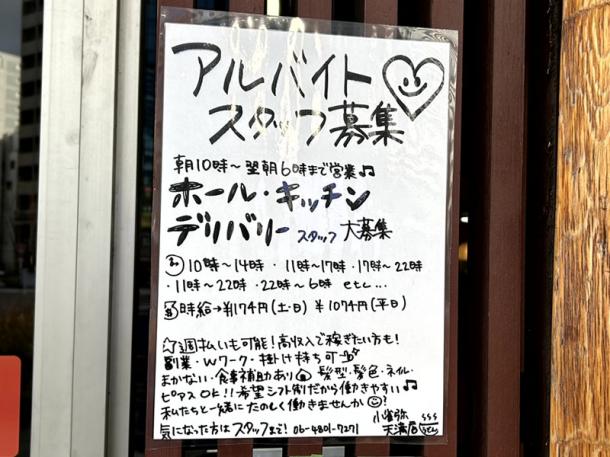 アルバイト
スタッフ募集
朝10時～翌朝6時まで営業♫
ホール・キッチン
デリバリー スタッフ 大募集
10時～14時・11時～17時・17時～22時
・11時～22時・22時～6時 etc...
時給→¥1174円(土・日) ¥1074円(平日)
☆週払いも可能！高収入で稼ぎたい方も！
副業・Wワーク・掛け持ち可
まかない・食事補助あり 髪型・髪色・ネイル・
ピアスOK!!希望シフト制だから働きやすい♫
私たちと一緒にたのしく働きませんか
気になった方はスタッフまで！ 06-4801-7271
天満店